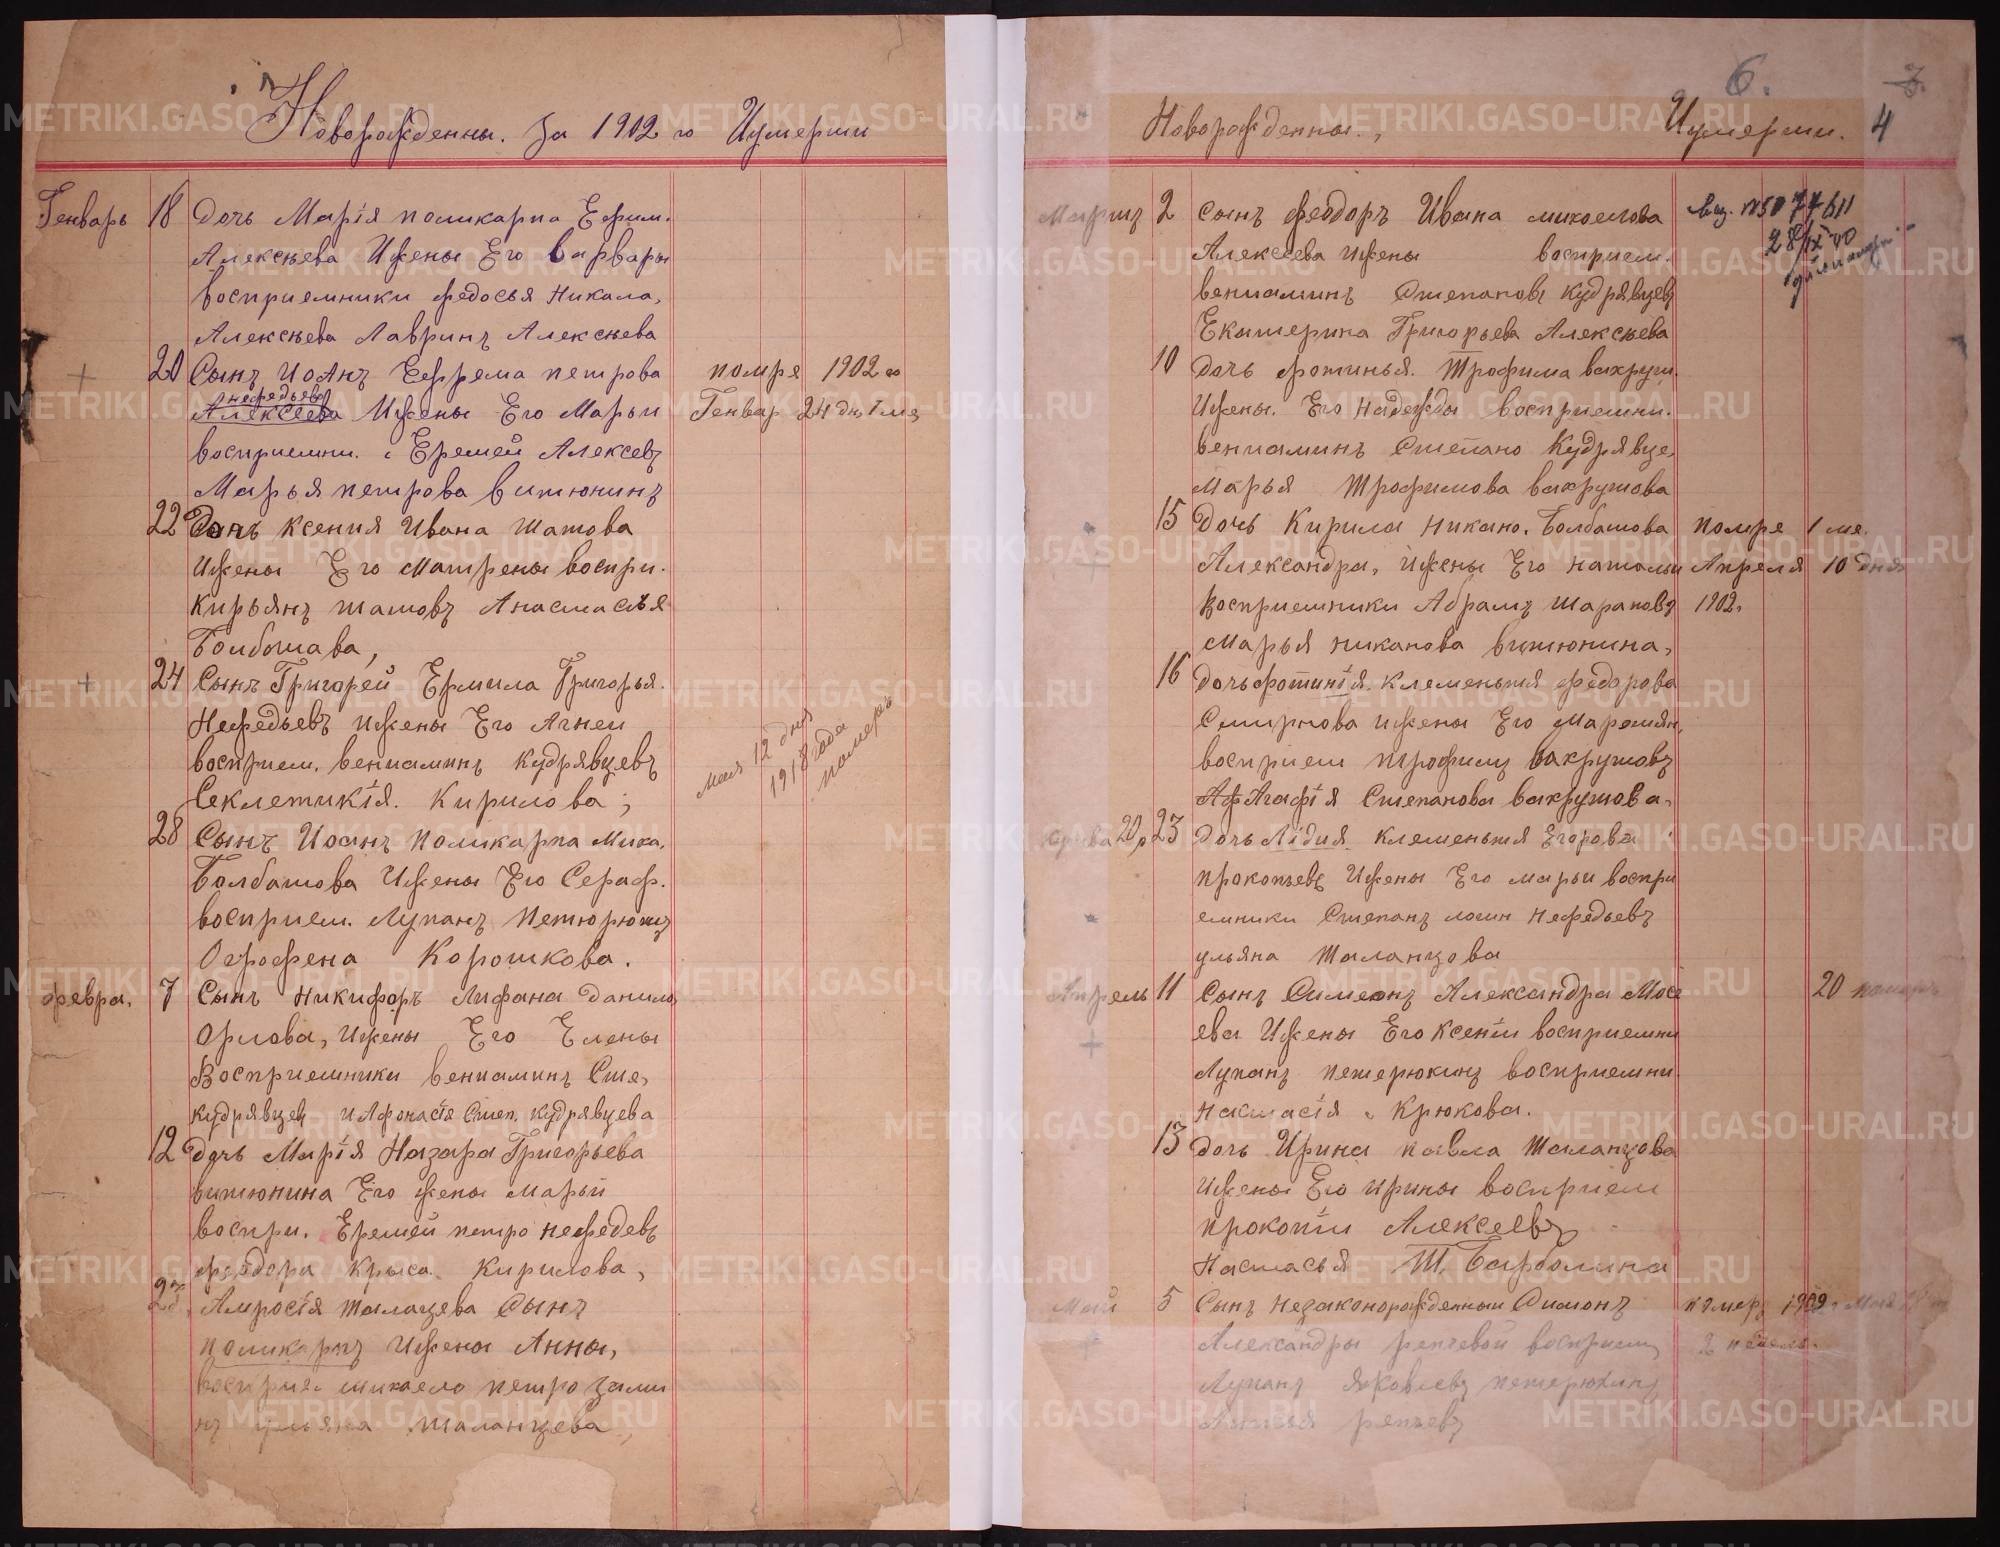 Новорожденны. За 1902 го Иумерши
Генварь 18 Дочь Марія поликарпа Ефим.
Алексѣева Ижены Его Варвары
восприемники федосья Никала,
Алексѣева Лавринъ Алексѣева
20 Сынъ Иоанъ Ефрема петрова помре 1902 го
нефедьева
Алексеева Ижены Его Марьи Генвар 24 дн.
восприемни. Еремей Алексевъ
Марья петрова витюнинъ
22 Дочь Ксения Ивана Шатова
Ижены Его Матрены воспри.
Кирьянъ шатовъ Анастасья
Болботава,
24 Сынъ Григорей Ермила Григорья.
Нефедьевъ ижены Его Агнеи
восприем. вениаминъ Кудрявцевъ
Секлетикія. Кирилова;
мая 12 дня
1918 года
памеръ
28 Сынъ Иоанъ поликарпа Мика.
Болбатова Ижены Его Сераф.
восприем. Лупанъ Петюрюкинъ
Ографена Корошкова.
февра. 7 Сынъ Никифоръ Лифана данило
Орлова, ижены Его Елены
Восприемники вениаминъ Сте,
кудрявцев и Афонасія Степ. кудрявцева
12 дочь Марія Назара Григорьева
витюнина Его жены Марьи
воспри. Еремей петро нефедевъ
феодора Крыса Кирилова,
Амросія талацева Сынъ
поликарпъ Ижены Анны,
восприе. микаело петро
шаланцева,
6. 3.
Новорожденны., Иумерши. 4
Мартъ 2 Сынъ феодоръ Ивана микаелова
Алексеева ижены восприем.
вениаминъ Степановъ Кудрявцев
Екатерина Григорьева Алексѣева
10 дочь фотинья. Трофима вакруш.
Ижены. Его Надежды восприемни.
вениаминъ Степано Кудрявце,
Марья Трофимова вакрушова
15 Дочь Кирила Никано. Болбатова помре 1 ме.
Александра, ижены Его натальи Апреля 10 дня
Восприемники Абрамъ Шарановъ 1902,
Марья никанова витюнина,
16 дочь фотинія. Клеменьтя федорова
Смирнова ижены Его Маремьян,
восприем трофимъ вакрушовъ
Афагафія Степанова вакрушова.
23 дочь Лідия. Клеменьтя Егорова
прокопьевъ Ижены Его марьи воспри
емники Степанъ логин Нефедьевъ
ульяна Таланцова
Апрель 11 Сынъ Симеонъ Александра Мосе 20 памеръ
ева Ижены Его Ксеніи восприемни
Лупанъ петерюкинъ восприемни
Настасія Крюкова.
13 дочь Ирина павла Таланцова
Ижены Его ирины восприем
прокопіи Алексеевъ
Настасья Т. Барболина
Май 5 Сынъ Незаконорожденныи Симонъ памеръ 1902 Мая
Александры репчевой восприем 2 недель.
Лупанъ Яковлевъ петерюкинъ
репьевъ